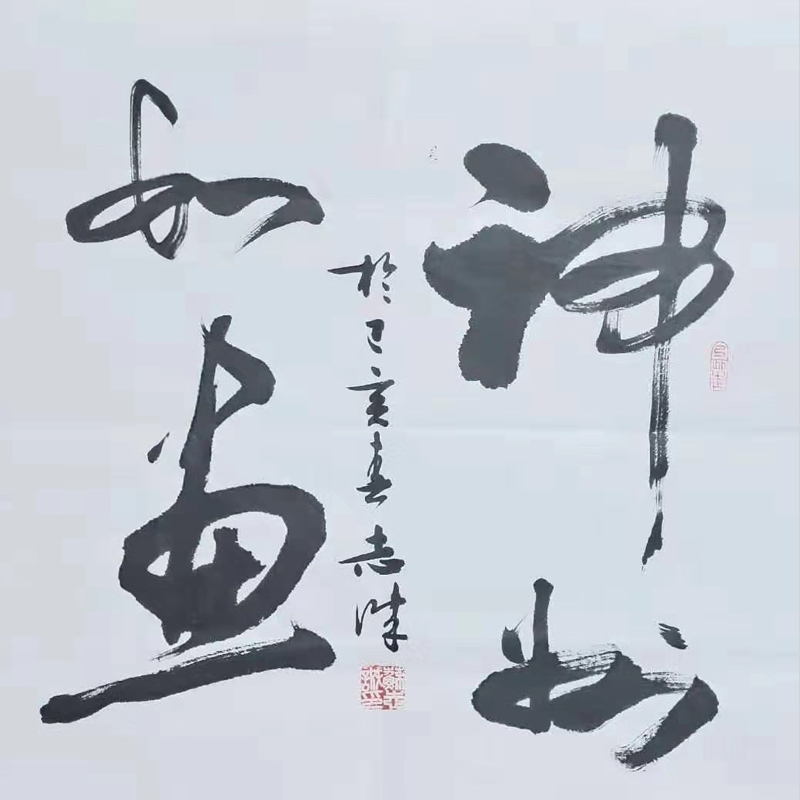 神州
如画
於己亥春志